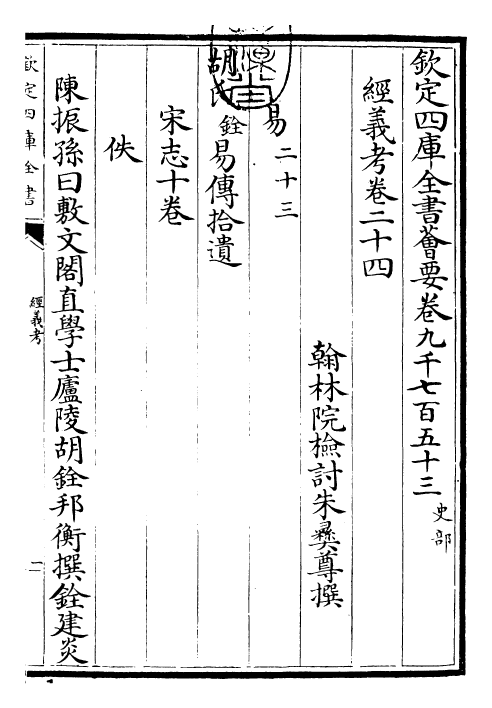 欽定四庫全書薈要卷九千七百五十三 史部
經義考卷二十四
翰林院檢討朱彝尊撰
易二十三
胡氏銓易傳拾遺
宋志十卷
佚
陳振孫曰敷文閣直學士廬陵胡銓邦衡撰銓建炎
欽定四庫全書
經義考